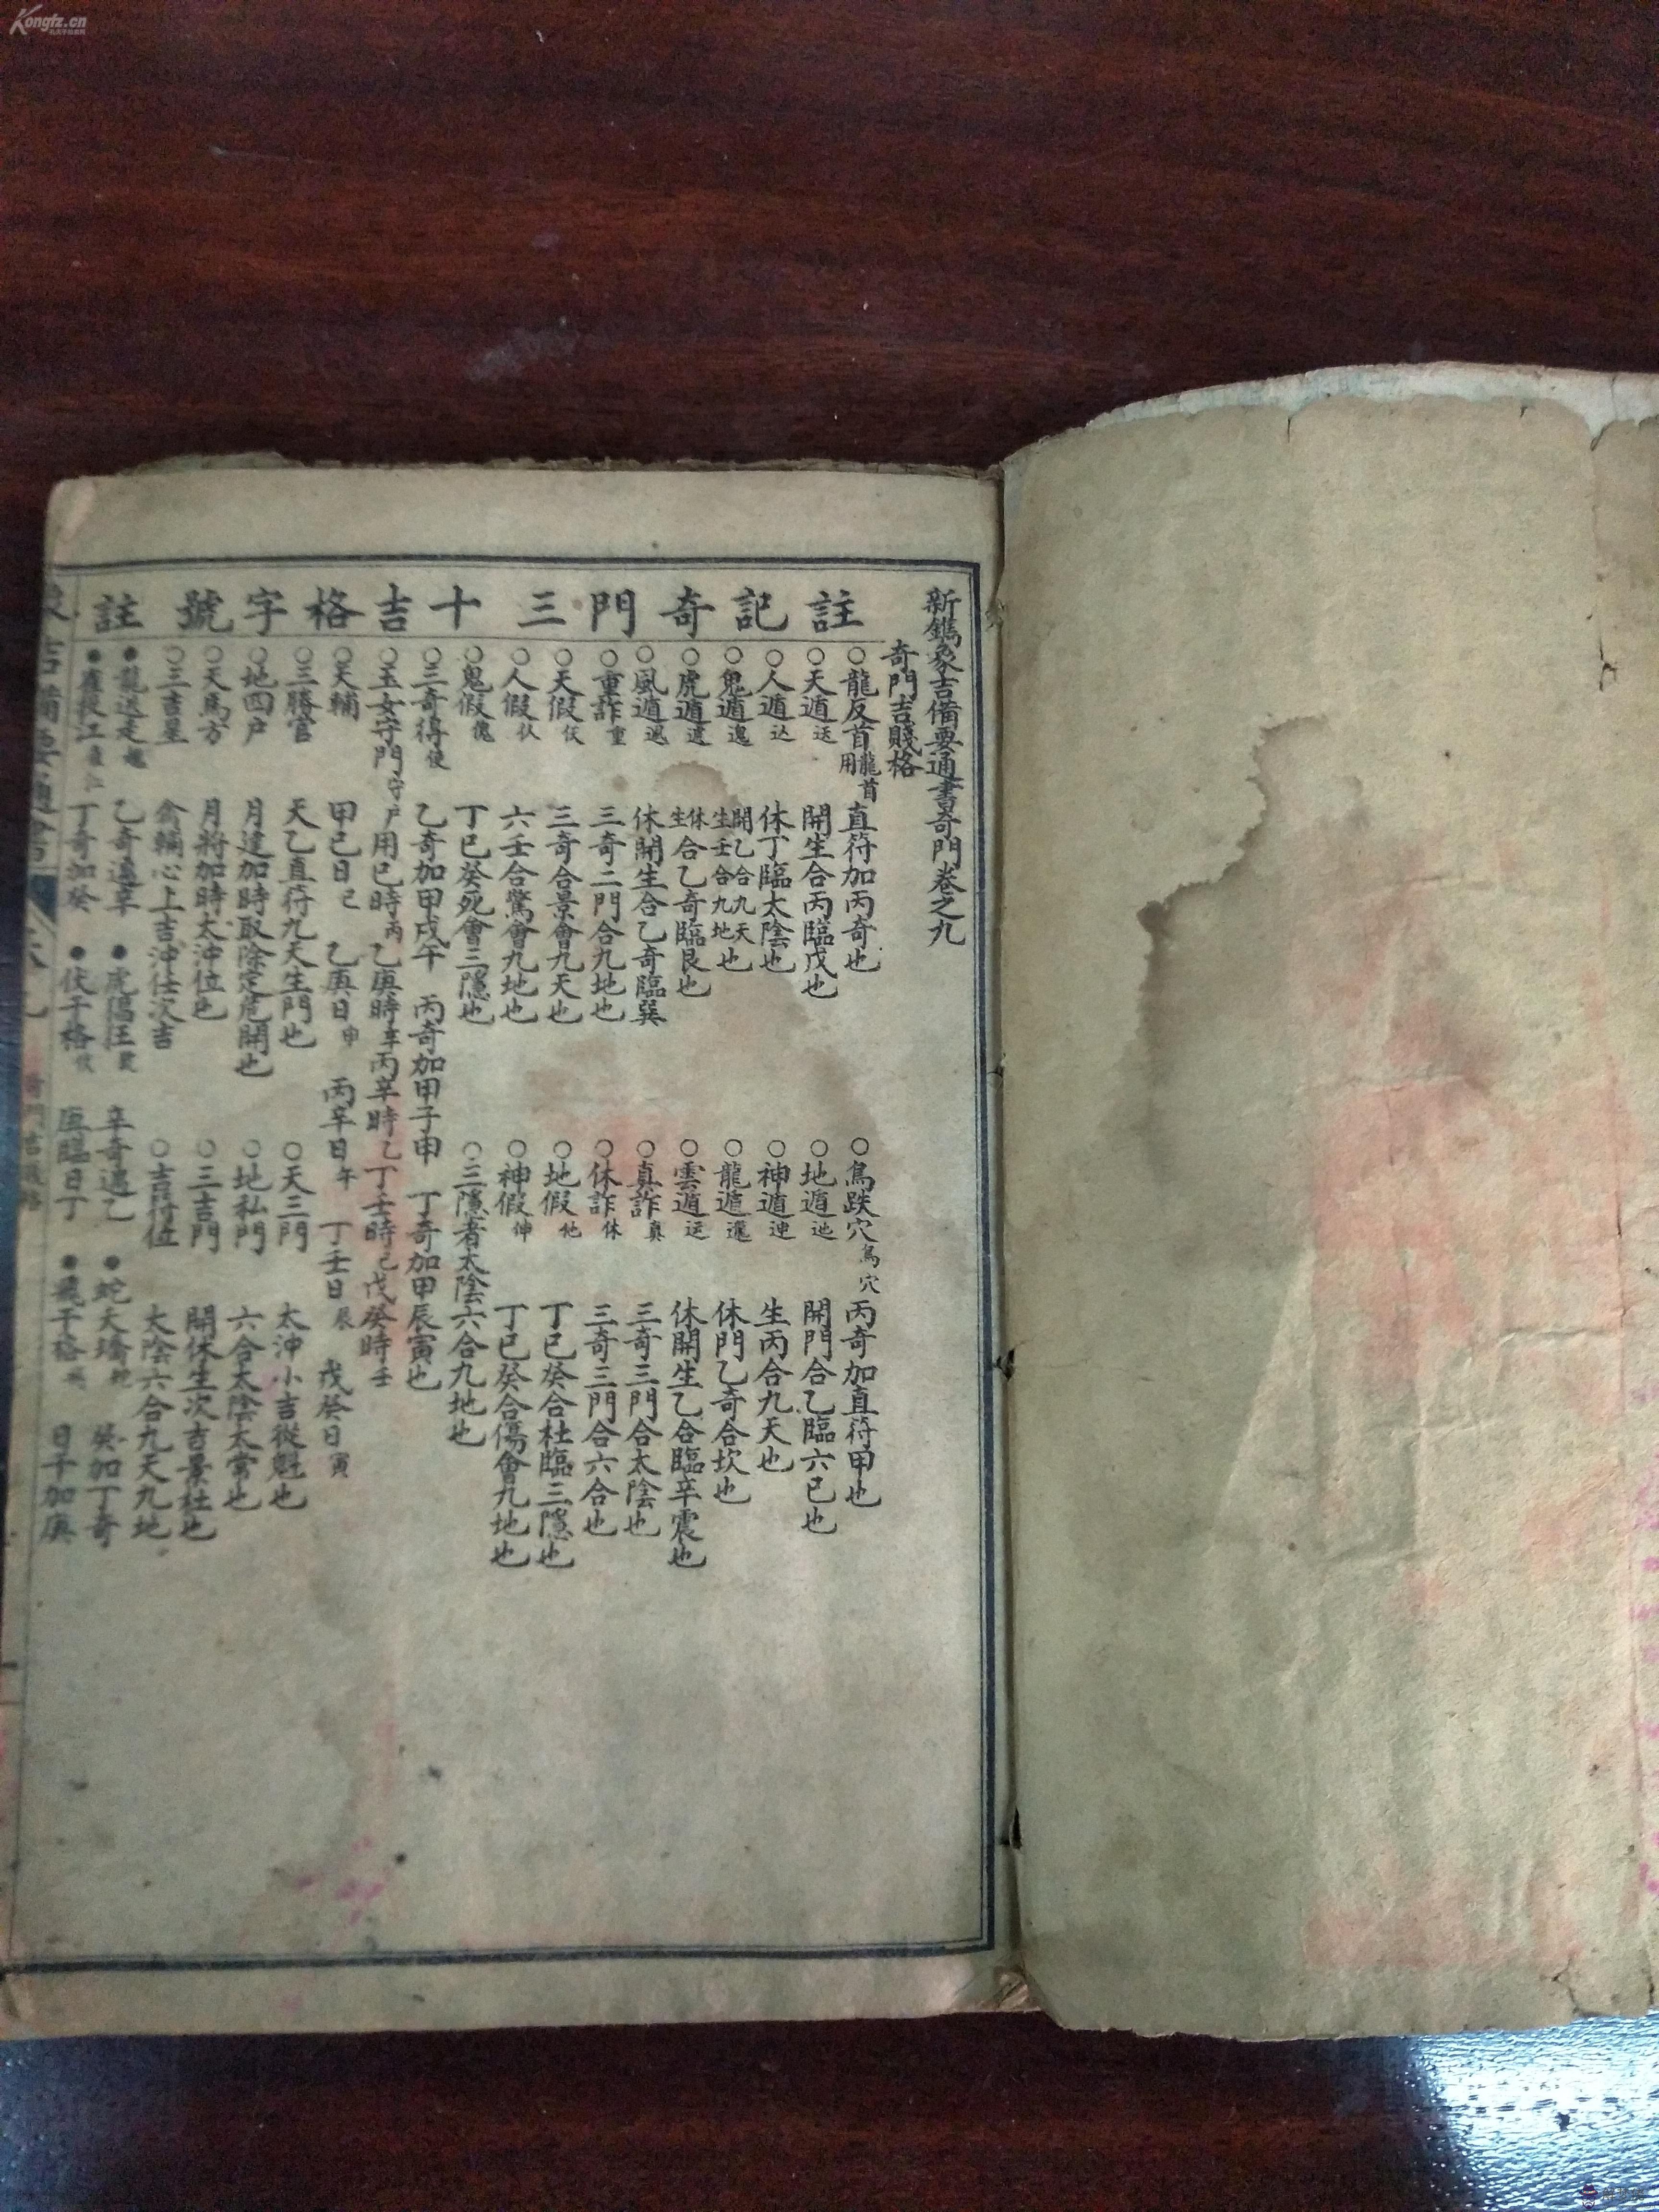 Kongfz.cn
新鐫象吉備要通書奇門卷之九
奇門吉賤格
註記奇門三十吉格字號註
○龍反首龍首用 直符加丙奇也 ○鳥跌穴鳥穴 丙奇加直符甲也
○天遁 開生合丙臨戊也 ○地遁 開門合乙臨六已也
○人遁 休丁臨太陰也 ○神遁 生丙合九天也
○鬼遁 開乙合九天生壬合九地也 ○龍遁 休門乙奇合坎也
○虎遁 休生合乙奇臨艮也 ○雲遁 休開生乙合臨辛震也
○風遁 休開生合乙奇臨巽 ○真詐真 三奇三門合太陰也
○重詐重 三奇二門合九地也 ○休詐休 三奇三門合六合也
○天假 三奇合景會九天也 ○地假他 丁已癸合杜臨三隱也
○人假 六壬合驚會九地也 ○神假伸 丁已癸合傷會九地也
○鬼假傀 丁已癸死會三隱也 ○三隱者太陰六合九地也
○三奇得使 乙奇加甲戌午 丙奇加甲子申 丁奇加甲辰寅也
○玉女守門守户 用已時丙 乙庚時辛 丙辛時乙 丁壬時己 戊癸時壬
○天輔 甲已日已 乙庚日申 丙辛日午 丁壬日辰 戊癸日寅
○三勝宮 天乙直符九天生門也 ○天三門 太沖小吉從魁也
○地四户 月建加時取除定危開也 ○地私門 六合太陰太常也
○天馬方 月將加時太沖位也 ○三吉門 開休生次吉景杜也
○三吉星 禽輔心上吉沖任次吉 ○吉符位 太陰六合九天九地
●龍逃走 乙奇遇辛 ●虎猖狂 辛奇遇乙 ●蛇夭矯 癸加丁奇
●雀投江 丁奇加癸 ●伏干格 庚臨日丁 ●飛干格 日干加庚